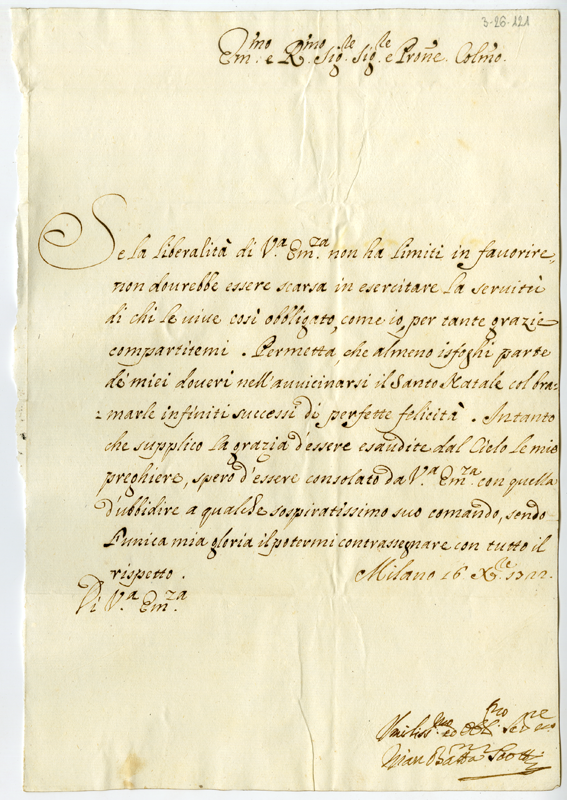 3-26-121
Em.mo e R.mo Sig.re Sig.re e Prone. Colmo.
Se la liberalità di V.a Em.za non ha limiti in favorire,
non dovrebbe essere scarsa in esercitare la servitù
di chi le vive così obbligato, come io, per tante grazie
compartitemi. Permetta che almeno isfoghi parte
de' miei doveri nell'avvicinarsi il Santo Natale col bra=
=marle infiniti successi di perfette felicità. Intanto
che supplico la grazia d'essere esaudite dal Cielo le mie
preghiere, spero d'essere consolato da V.a Em.za con quella
d'ubbidire a qualche sospiratissimo suo comando, sendo
l'unica mia gloria il potermi contrassegnare con tutto il
rispetto. Milano 16 X.re
Di V.a Em.za
Umiliss.mo ed Obb.
Gian Batta Scotti